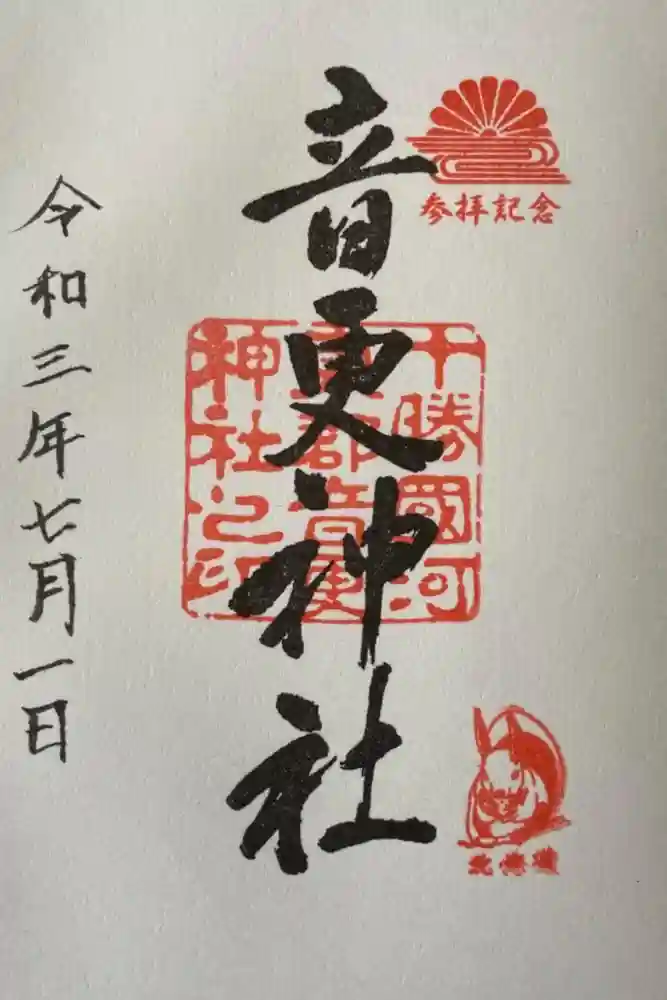 参拝記念
十勝國河
東郡音更
神社之印
音更神社
北海道
令和三年七月一日